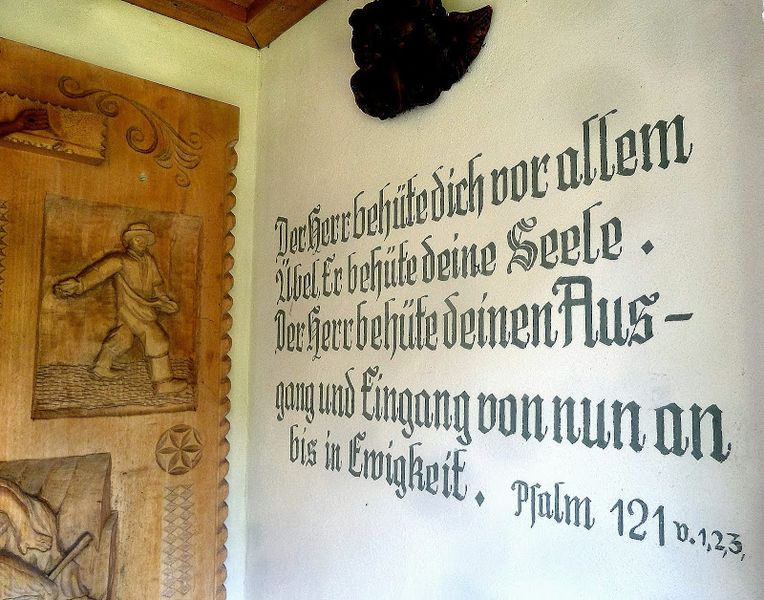 Der Herr behüte dich vor allem
Übel. Er behüte deine Seele.
Der Herr behüte deinen Aus-
gang und Eingang von nun an
bis in Ewigkeit. Psalm 121 v. 1,2,3,